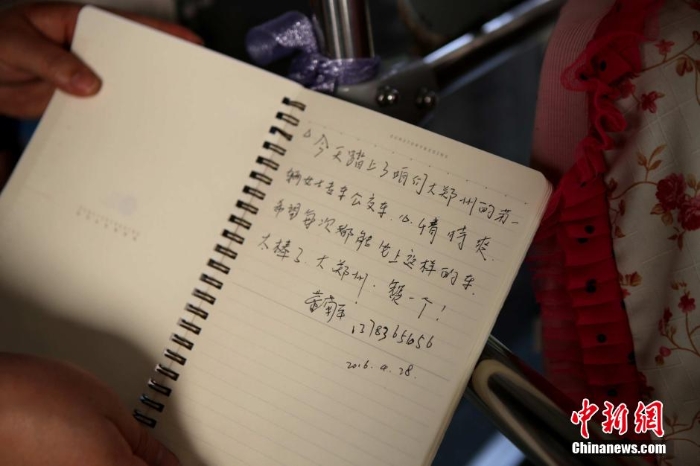 今天踏上了咱们大郑州的第一
辆女士专车公交车,心情特爽.
希望每次都能坐上这样的车.
太棒了 大郑州.赞一个!
2016.4.28.
中新网
Chinanews.com